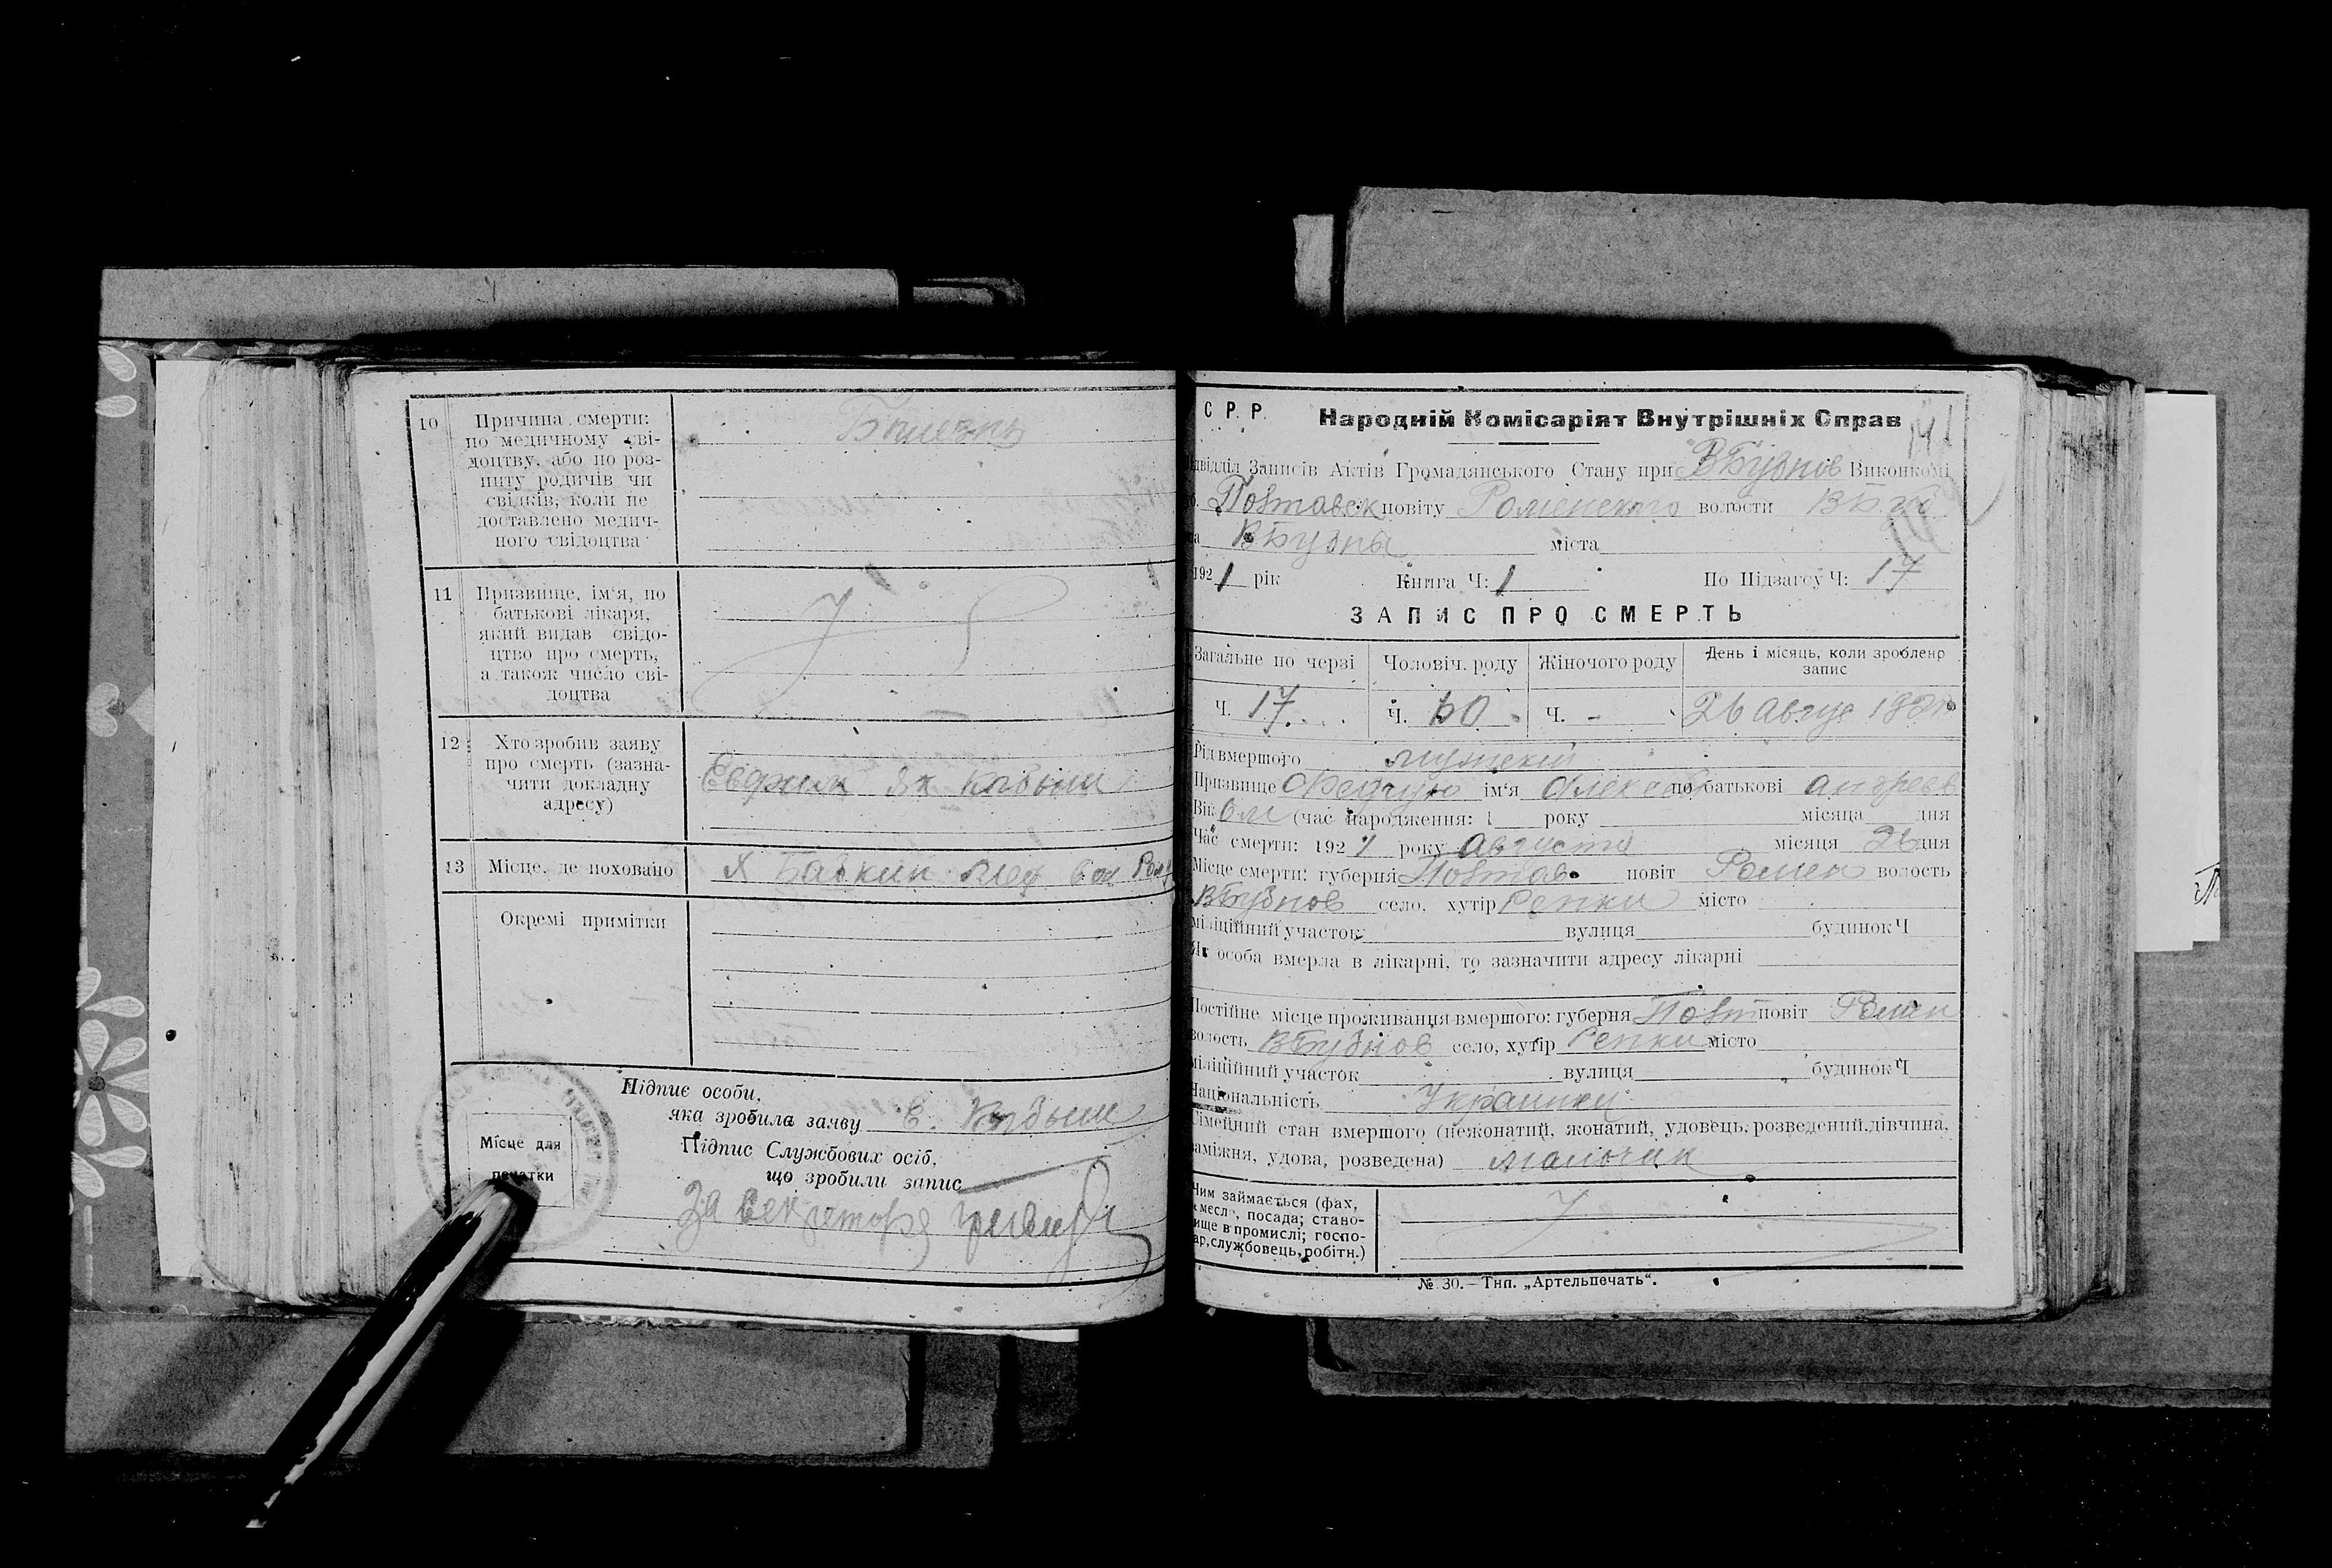 10
Причина смерти:
по медичному сві-
доцтву, або по роз-
питу родичів чи
свідків, коли не
доставлено медич-
ного свідоцтва
11
Призвище, ім'я, по
батькові лікаря,
який видав свідо-
цтво про смерть,
а також число сві-
доцтва
12
Хто зробив заяву
про смерть (зазна-
чити докладну
адресу)
13 Місце, де поховано
Окремі примітки
Підпис особи,
яка зробила заяву Е.
Підпис Службових осіб,
що зробили запис
За секретаря
Місце для
печатки
С. Р. Р. Народній Комісаріят Внутрішніх Справ
141
Записів Актів Громадянського Стану при ВБубнов Виконкомі
Полтавск повіту Роменского волости
ВБубны міста
1921 рік Книга Ч: 1 По Підзагсу Ч: 17
ЗАПИС ПРО СМЕРТЬ
Загальне по черзі Чоловіч. роду Жіночого роду День і місяць, коли зроблено
запис
Ч. 17 Ч. Ч. - 26 Авгус 1921
Рід вмершого мужской
Призвище ім'я Алексей по батькові Андреев
Вік (час народження: 1 року місяца дня
Час смерти: 1921 року Августа місяця 26 дня
Місце смерти: губерня Полтав повіт Ромен волость
ВБубнов село, хутір Репки місто
міліційний участок вулиця будинок Ч
Як особа вмерла в лікарні, то зазначити адресу лікарні
Постійне місце проживання вмершого: губерня Полт повіт Ромен
волость ВБубнов село, хутір Репки місто
міліційний участок вулиця будинок Ч
Національність
Сімейний стан вмершого (нежонатий, жонатий, удовець, розведений, дівчина,
заміжня, удова, розведена) мальчик
Чим займається (фах,
ремесло, посада; стано-
вище в промислі; госпо-
дар, службовець, робітн.)
№ 30.—Тип. „Артельпечать".